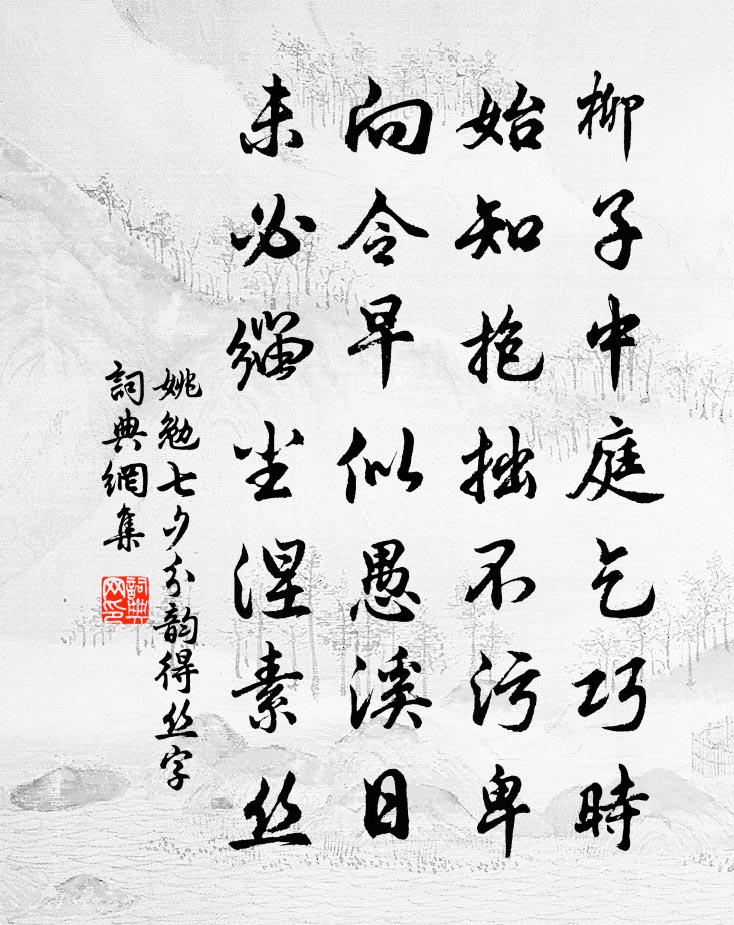 柳子中庭乞巧時
始知抱拙不污卑
向令早似愚溪日
未必緇塵涅素絲
姚勉七夕分韵得丝字
詞典網集
詞典
网印